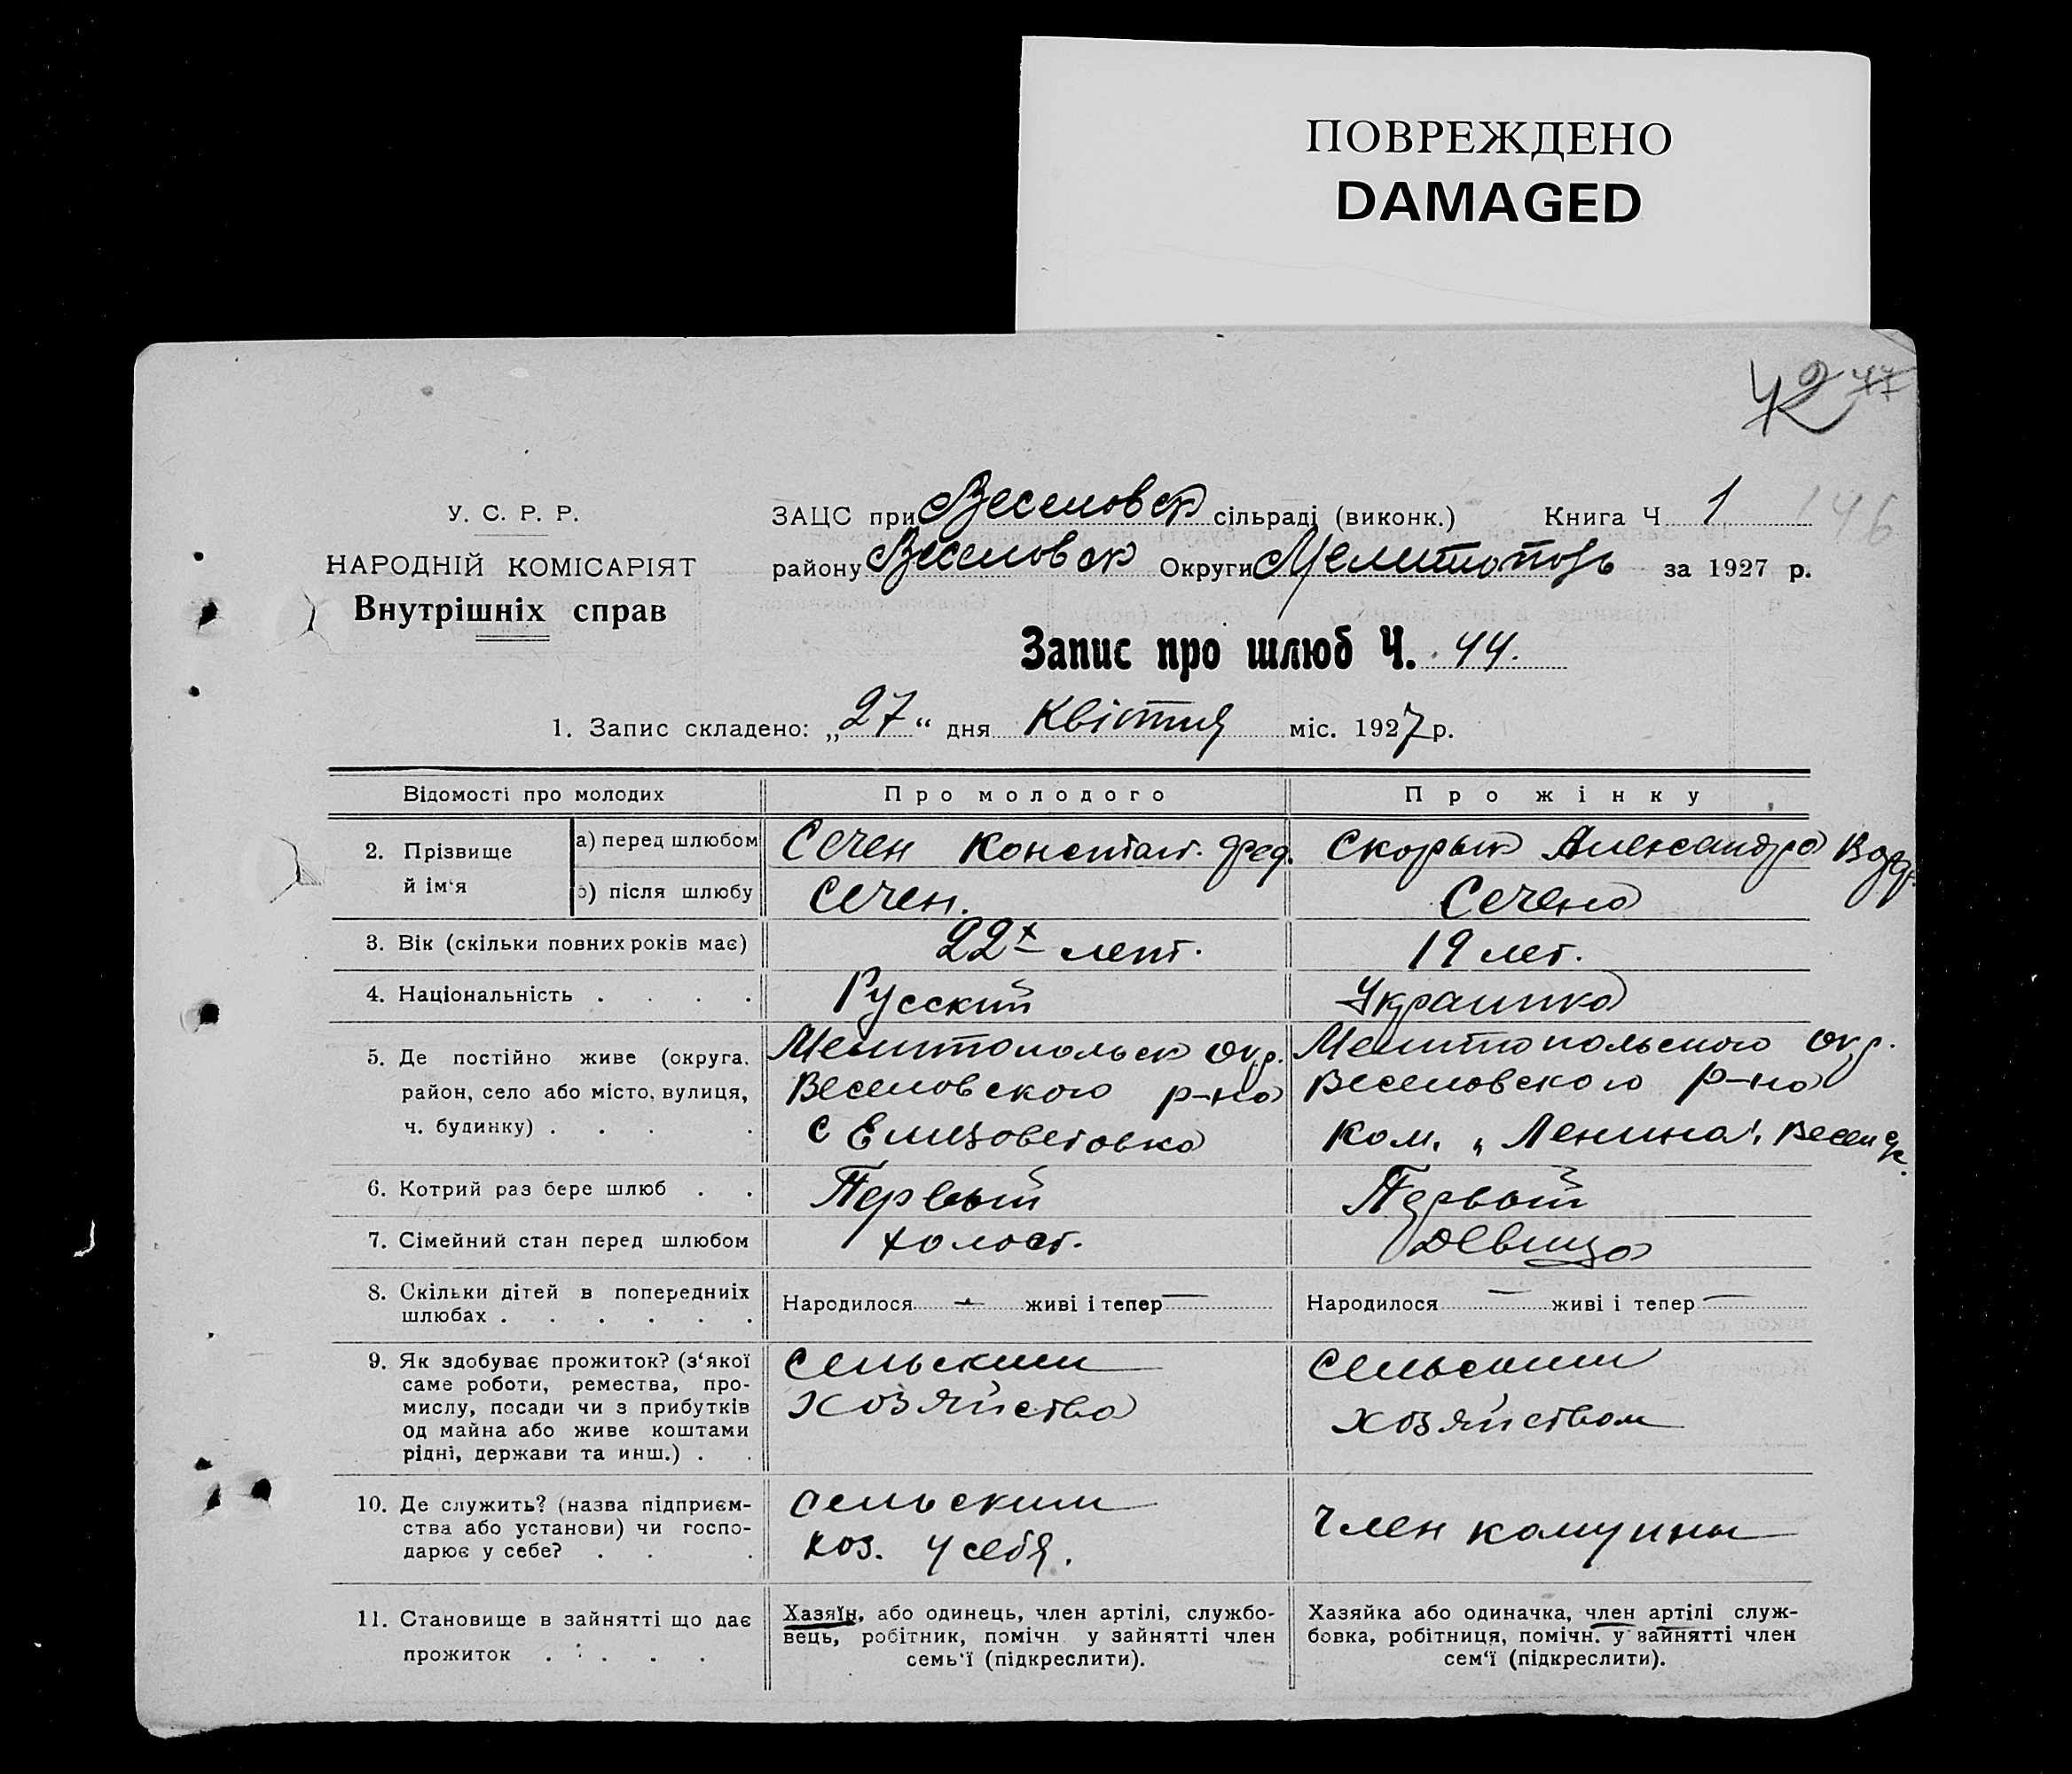 ПОВРЕЖДЕНО
DAMAGED
42 47
У. С. Р. Р.
НАРОДНІЙ КОМІСАРІЯТ
Внутрішніх справ
ЗАЦС при Веселовск сільраді (виконк.) Книга Ч 1 146
району Веселовск Округи Мелитополь за 1927 р.
Запис про шлюб Ч. 44.
1. Запис складено: „27“ дня Квітня міс. 1927 р.
Відомості про молодих Про молодого Про жінку
2. Прізвище й ім‘я
а) перед шлюбом Сечен Констант. Фед. Скорык Александра
б) після шлюбу Сечен. Сечено
3. Вік (скільки повних років має) 22х лет. 19 лет.
4. Національність . . . . Русский Украинка
5. Де постійно живе (округа, Мелитопольск Окр. Мелитопольского Окр.
район, село або місто, вулиця, Веселовского р-на Веселовского р-на
ч. будинку) . . . . с Елизоветовка Ком. „Ленина“, Веселск.
6. Котрий раз бере шлюб . . Первый Первый
7. Сімейний стан перед шлюбом холост. Девица
8. Скільки дітей в попередниіх Народилося — живі і тепер — Народилося — живі і тепер —
шлюбах . . . . . .
9. Як здобуває прожиток? (з‘якої Сельским Сельским
саме роботи, ремества, про- хозяйства хозяйством
мислу, посади чи з прибутків
од майна або живе коштами
рідні, держави та инш.) . .
10. Де служить? (назва підприєм- Сельским Член комуны
ства або установи) чи госпо- хоз. у себя.
дарює у себе? . . .
11. Становище в зайнятті що дає Хазяїн, або одинець, член артілі, службо- Хазяйка або одиначка, член артілі служ-
прожиток . . . . . вець, робітник, помічн у зайнятті член бовка, робітниця, помічн. у зайнятті член
семь‘ї (підкреслити). сем‘ї (підкреслити).